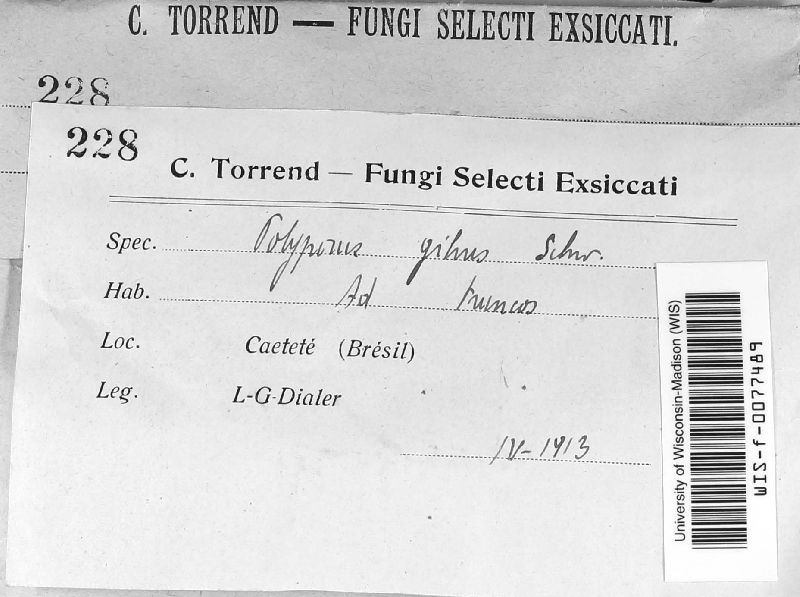 C. TORREND — FUNGI SELECTI EXSICCATI.
228
228
C. Torrend — Fungi Selecti Exsiccati
Spec. Polyporus gilvus Schw.
Hab. Ad truncos
Loc. Caeteté (Brésil)
Leg. L-G-Dialer
IV-1913
University of Wisconsin-Madison (WIS)
WIS-f-0077489